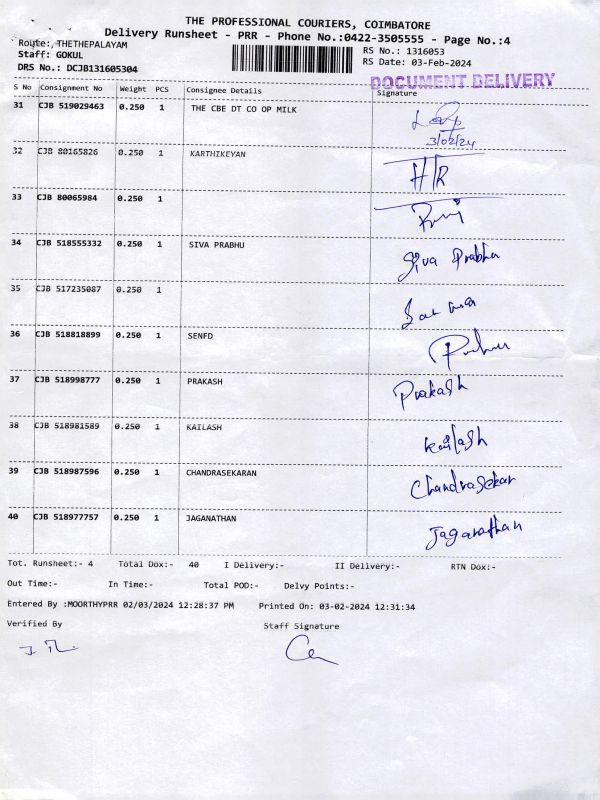 THE PROFESSIONAL COURIERS, COIMBATORE
Delivery Runsheet - PRR - Phone No.:0422-3505555 - Page No.:4
Route:, THETHEPALAYAM
Staff: GOKUL
DRS No.: DCJB131605304
RS No.: 1316053
RS Date: 03-Feb-2024
DOCUMENT DELIVERY
S No Consignment No Weight PCS Consignee Details Signature
31 CJB 519029463 0.250 1 THE CBE DT CO OP MILK
3/02/24
32 CJB 80165826 0.250 1 KARTHIKEYAN H/R
33 CJB 80065984 0.250 1
34 CJB 518555332 0.250 1 SIVA PRABHU Siva Prabhu
35 CJB 517235087 0.250 1
36 CJB 518818899 0.250 1 SENFD
37 CJB 518998777 0.250 1 PRAKASH Prakash
38 CJB 518981589 0.250 1 KAILASH Kailash
39 CJB 518987596 0.250 1 CHANDRASEKARAN Chandrasekar
40 CJB 518977757 0.250 1 JAGANATHAN Jaganathan
Tot. Runsheet:- 4 Total Dox:- 40 I Delivery:- II Delivery:- RTN Dox:-
Out Time:- In Time:- Total POD:- Delvy Points:-
Entered By :MOORTHYPRR 02/03/2024 12:28:37 PM Printed On: 03-02-2024 12:31:34
Verified By Staff Signature